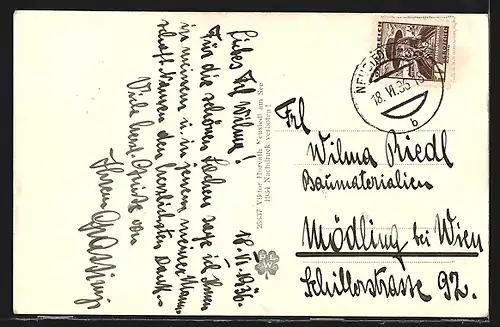 18. VI. 1936.
Liebes Frl Wilma!
Für die schönen Sachen sage ich Ihnen
in meinem u. in jenem meiner Mann-
schaft Namen den herzlichsten Dank.
Viele herzl. Grüße von
Ihrem
25637 Viktor Horvath Neusiedl am See
1934 Nachdruck verboten!
NEUSIEDL
18. VI. 36
b
Frl
Wilma Riedl
Baumaterialien
Mödling bei Wien
Schillerstrasse 92.